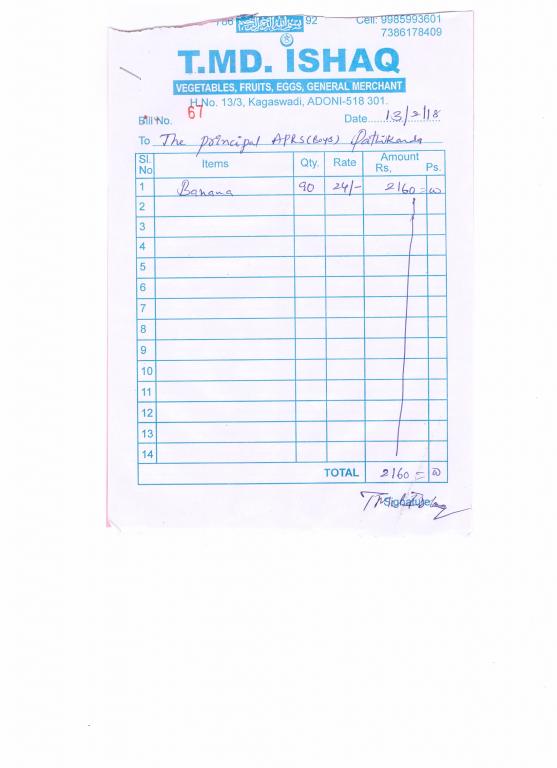 786 92 Cell: 9985993601
7386178409
T.MD. ISHAQ
VEGETABLES, FRUITS, EGGS, GENERAL MERCHANT
H.No. 13/3, Kagaswadi, ADONI-518 301.
Bill No. 67 Date 13/2/18
To The principal APRS(Boys)
Sl. No Items Qty. Rate Amount Rs, Ps.
1 Banana 90 24/- 2160 = 00
2
3
4
5
6
7
8
9
10
11
12
13
14
TOTAL 2160 = 00
Signature